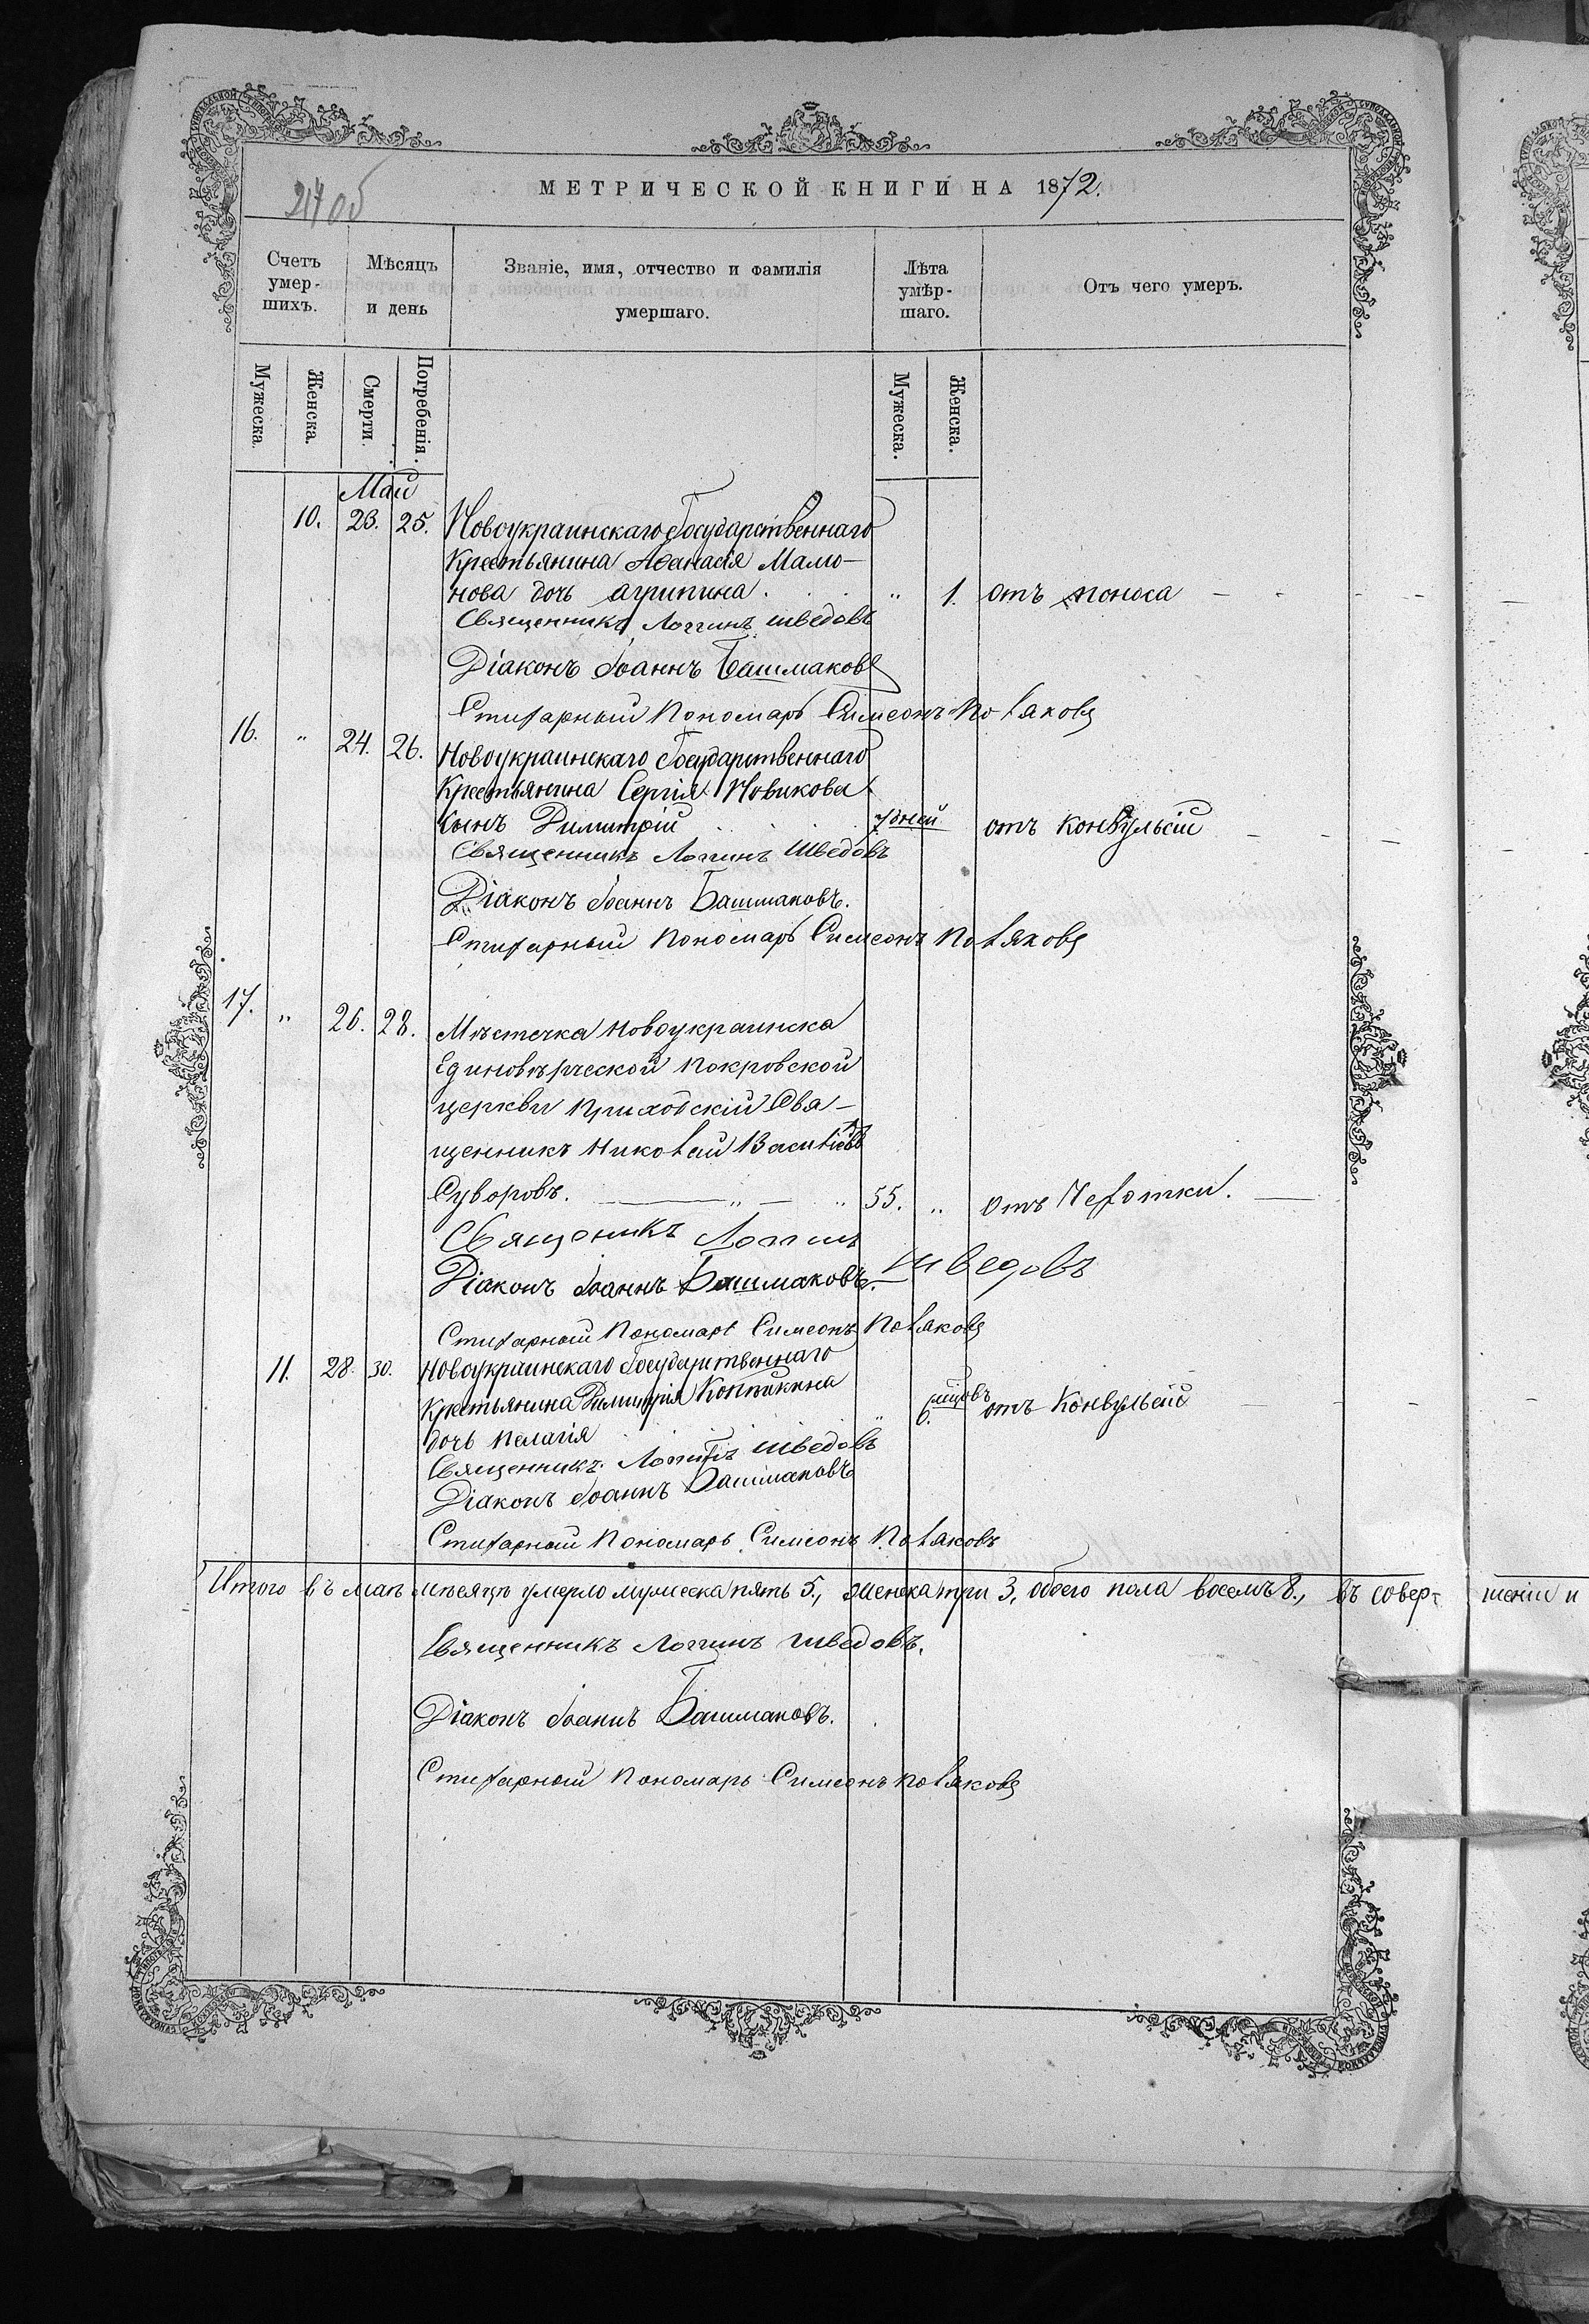 МЕТРИЧЕСКОЙ КНИГИ НА 1872.
Счетъ умер-шихъ.
Мѣсяцъ и день
Званіе, имя, отчество и фамилія умершаго.
Лѣта умер-шаго.
Отъ чего умеръ.
Мужеска.
Женска.
Смерти.
Погребенія.
Мужеска.
Женска.
Май
10. 23. 25. Новоукраинскаго Государственнаго
Крестьянина Аѳанасія Мамо-
нова дочь Агрипина. " 1. отъ поноса
Священникъ Логгинъ Шведовъ
Діаконъ Іоаннъ Башмаковъ
Стихарный Пономарь Симеонъ Поляковъ
16. " 24. 26. Новоукраинскаго Государственнаго
Крестьянина Сергія Новикова
сынъ Димитрій 7 дней отъ конвульсій
Священникъ Логгинъ Шведовъ
Діаконъ Іоаннъ Башмаковъ.
Стихарный Пономарь Симеонъ Поляковъ
17. " 26. 28. Мѣстечка Новоукраинска
Единовѣрческой Покровской
церкви Приходскій Свя-
щенникъ Николай Василіевъ
Суворовъ. " " 55. " Отъ Чехотки.
Священикъ Логгинъ
Шведовъ
Діаконъ Іоаннъ Башмаковъ.
Стихарный Пономарь Симеонъ Поляковъ
11. 28. 30. Новоукраинскаго Государственнаго
Крестьянина Димитрія
дочь Пелагія " 6. мцовъ отъ Конвульсій
Священникъ Логгинъ Шведовъ
Діаконъ Іоаннъ Башмаковъ
Стихарный Пономарь Симеонъ Поляковъ
Итого въ маѣ мѣсяцѣ умерло мужеска пять 5., женска три 3, обоего пола восемъ 8., въ совер- шеніи и
Священникъ Логгинъ Шведовъ.
Діаконъ Іоаннъ Башмаковъ.
Стихарный Пономарь Симеонъ Поляковъ